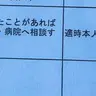 たことがあれば
・病院へ相談す
適時本人